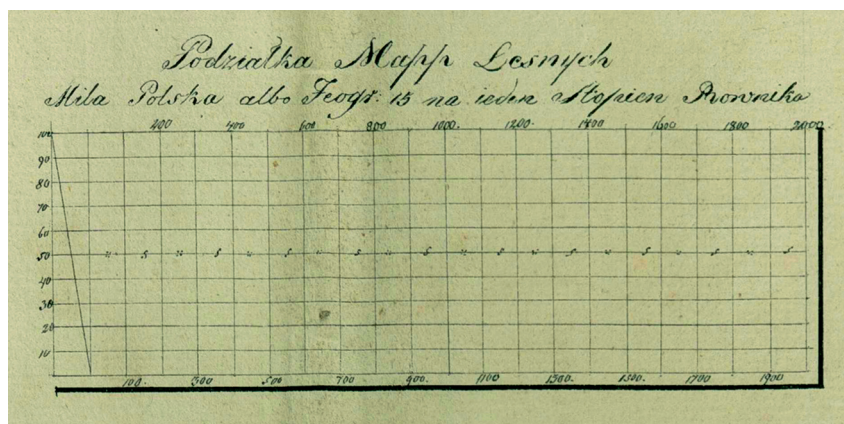 Podziałka Mapp Lesnych
Mila Polska albo Jeogr: 15 na ieden Stopien Rownika
200 400 600 800 1000. 1200 1400 1600 1800 2000
100
90
80
70
60
50
40
30
20
10
100. 300 500 700 900. 1100 1300. 1500. 1700 1900